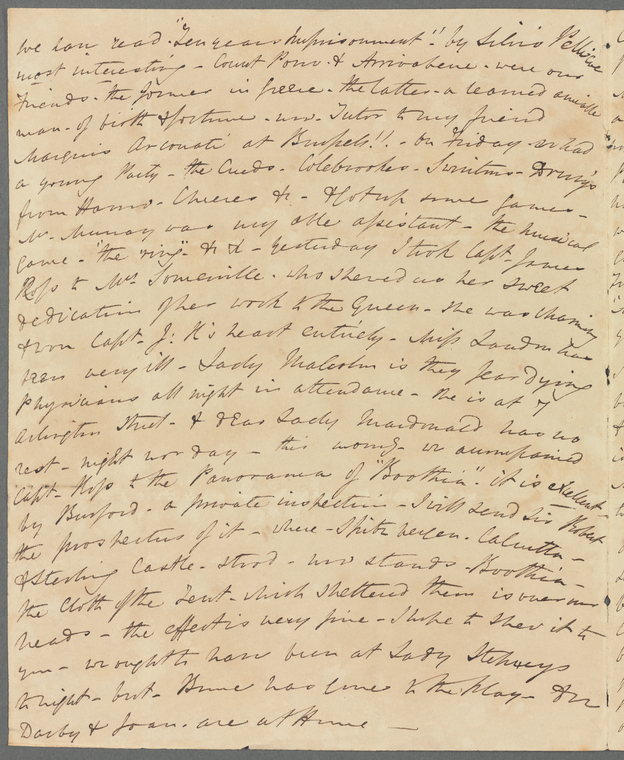 we have read "Ten years Imprisonment"!! by Silvio Pellico
most interesting - Count Porro & Arrivabene - were our
Friends - the former in Greece - the latter a learned amiable
man - of birth & fortune - now Tutor to my friend
Marquis Arconati at Brussels!! - On Friday we had
a young Party - the - Colebrookes - - Drury's
from Harrow - & - & got up some games -
Mr. Murray was my able assistant - the musical
game - "the ring" - & & - yesterday I took Capt James
Ross to Mrs Somerville - who shewed us her sweet
dedication of her work to the Queen - she was charming
& won Capt. J. R's heart entirely - Miss Landon has
been very ill - Lady Malcolm is they fear dying
Physicians all night in attendance - she is at 7
Arlington Street - & dear Lady Macdonald has no
rest - night nor day - this morng. we accompanied
Capt - Ross to the Panorama of "Boothia". it is excellent -
by Burford - a private inspection - I will send Sir Robert
the prospectus of it - where - Spitzbergen - Calcutta -
& Sterling Castle - stood - now stands - Boothia -
the Cloth of the Tent - which sheltered them is over our
heads - the effect is very fine - I hope to shew it to
you - we ought to have been at Lady Stepneys
tonight - but - has gone to the Play - & we
Darby & Joan - are at Home -